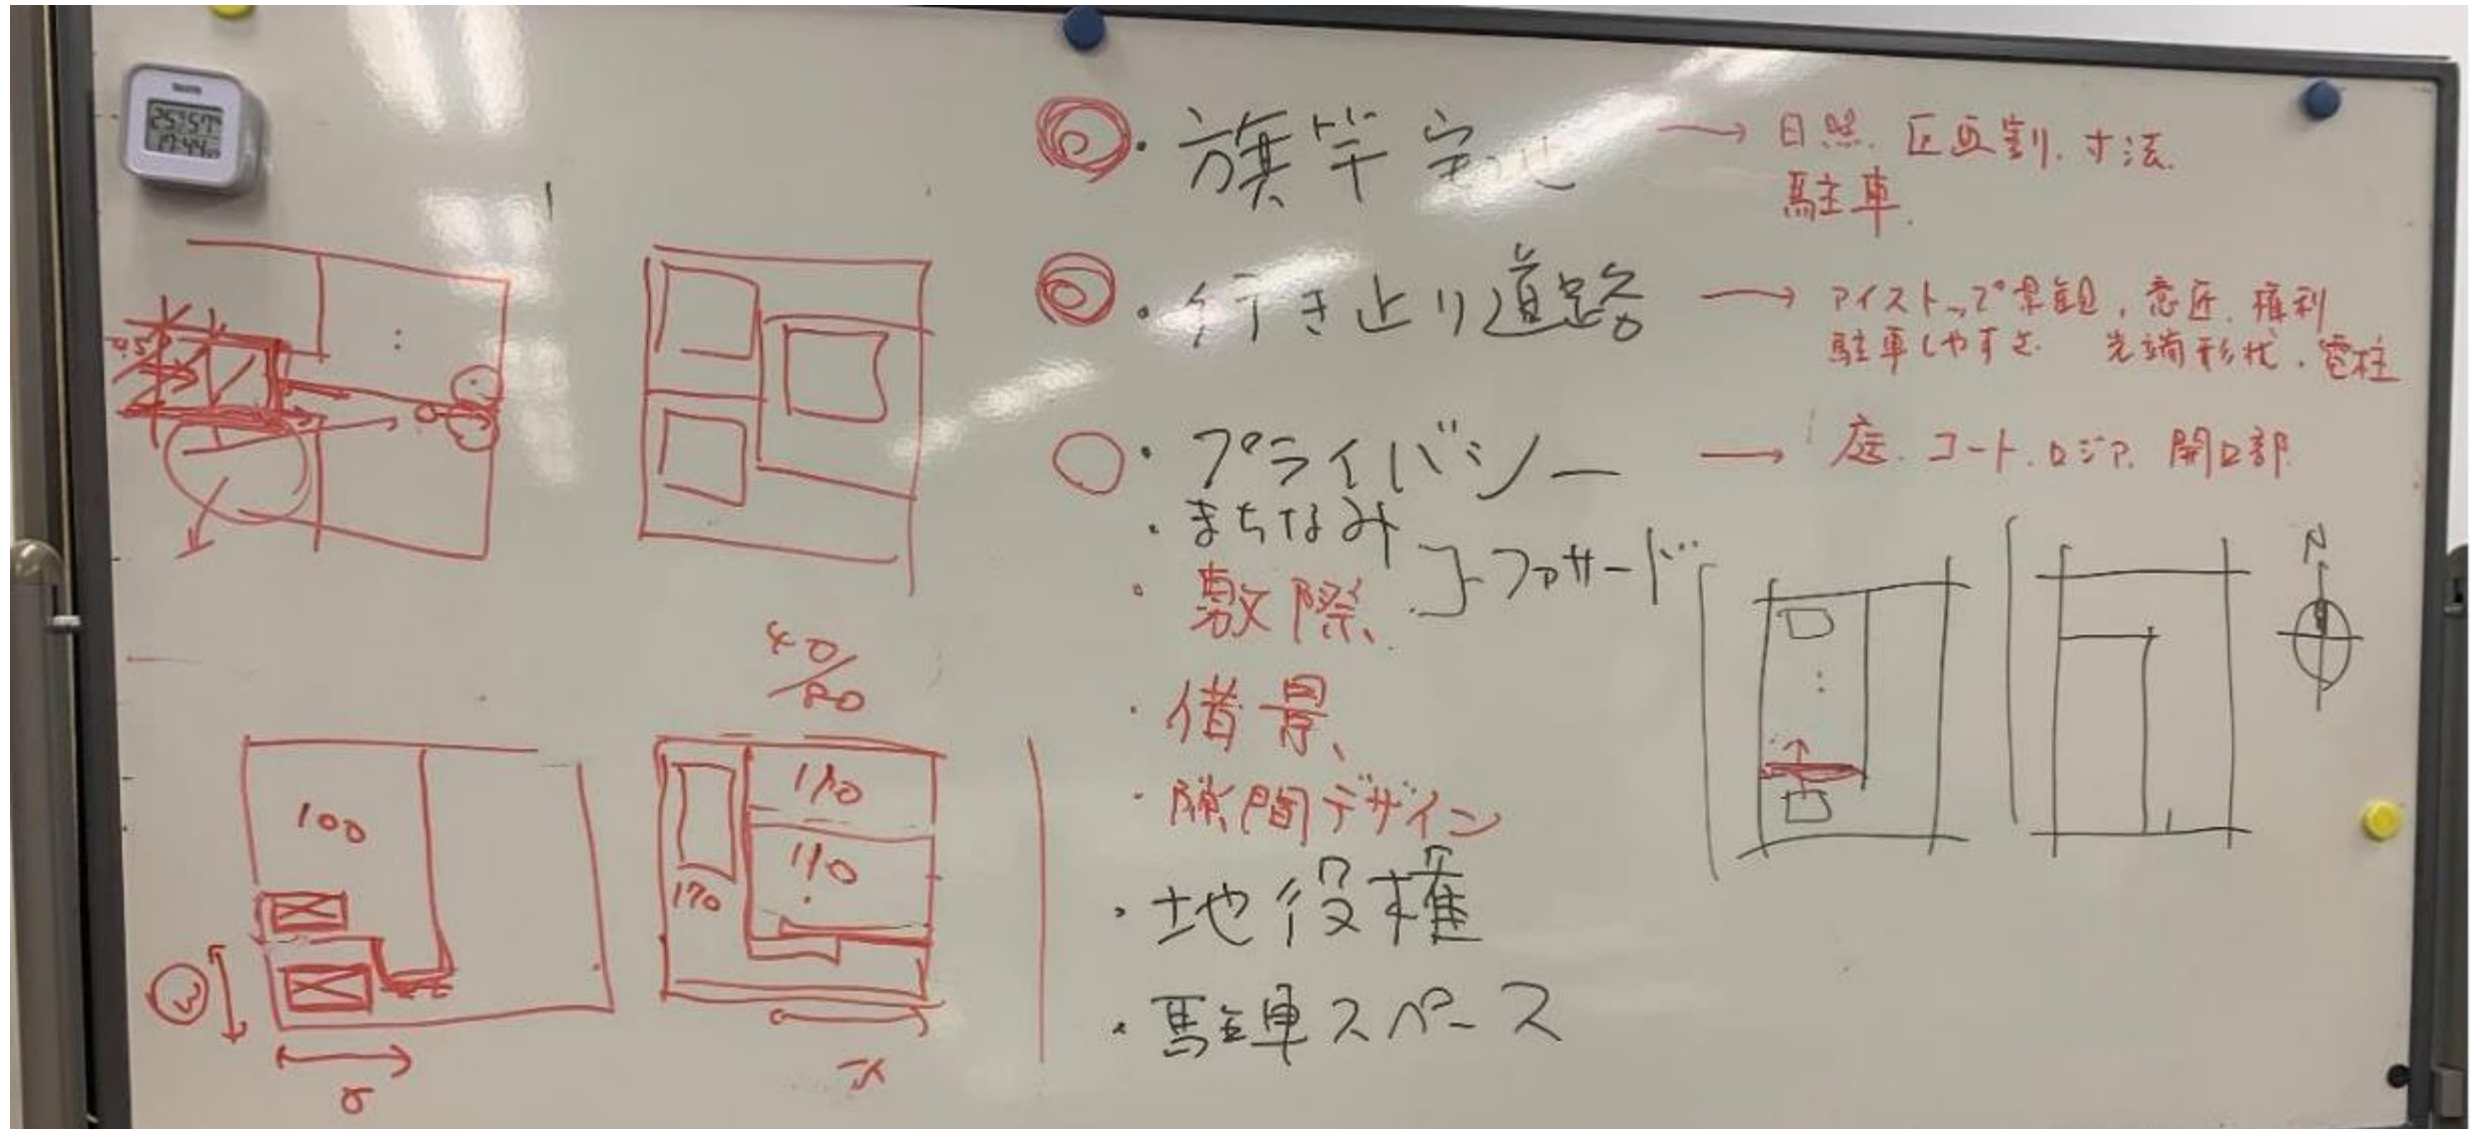 旗竿宅地 → 日照. 区画割. 寸法.
駐車.
行き止り道路 → アイストップ 景観, 意匠. 権利
駐車しやすさ. 先端形状. 電柱
プライバシー → 庭. コート. ロジア. 開口部.
・まちなみ
・敷際、
ファサード
・借景、
・隙間デザイン
・地役権
・駐車スペース
40/80
100
110
110
170
N